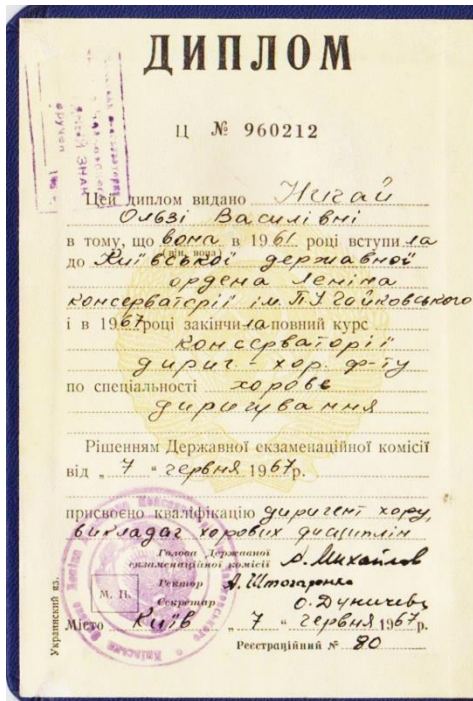 ДИПЛОМ
Ц № 960212
Цей диплом видано Ничай
Ользі Василівні
в тому, що вона в 1961 році вступила
(він, вона)
до Київської державної
ордена Леніна
консерваторії ім. П.І. Чайковського
і в 1967 році закінчила повний курс
консерваторії
дириг.-хор. ф-ту
по спеціальності хорове
диригування
Рішенням Державної екзаменаційної комісії
від „ 7 “ червня 1967 р.
присвоєно кваліфікацію диригент хору,
викладач хорових дисциплін
Голова Державної
екзаменаційної комісії А. Михайлов
Ректор А. Штогаренко
Секретар
М. П.
Місто Київ „ 7 “ червня 1967 р.
Реєстраційний № 80
Украинский яз.
ЗНАК
вручен